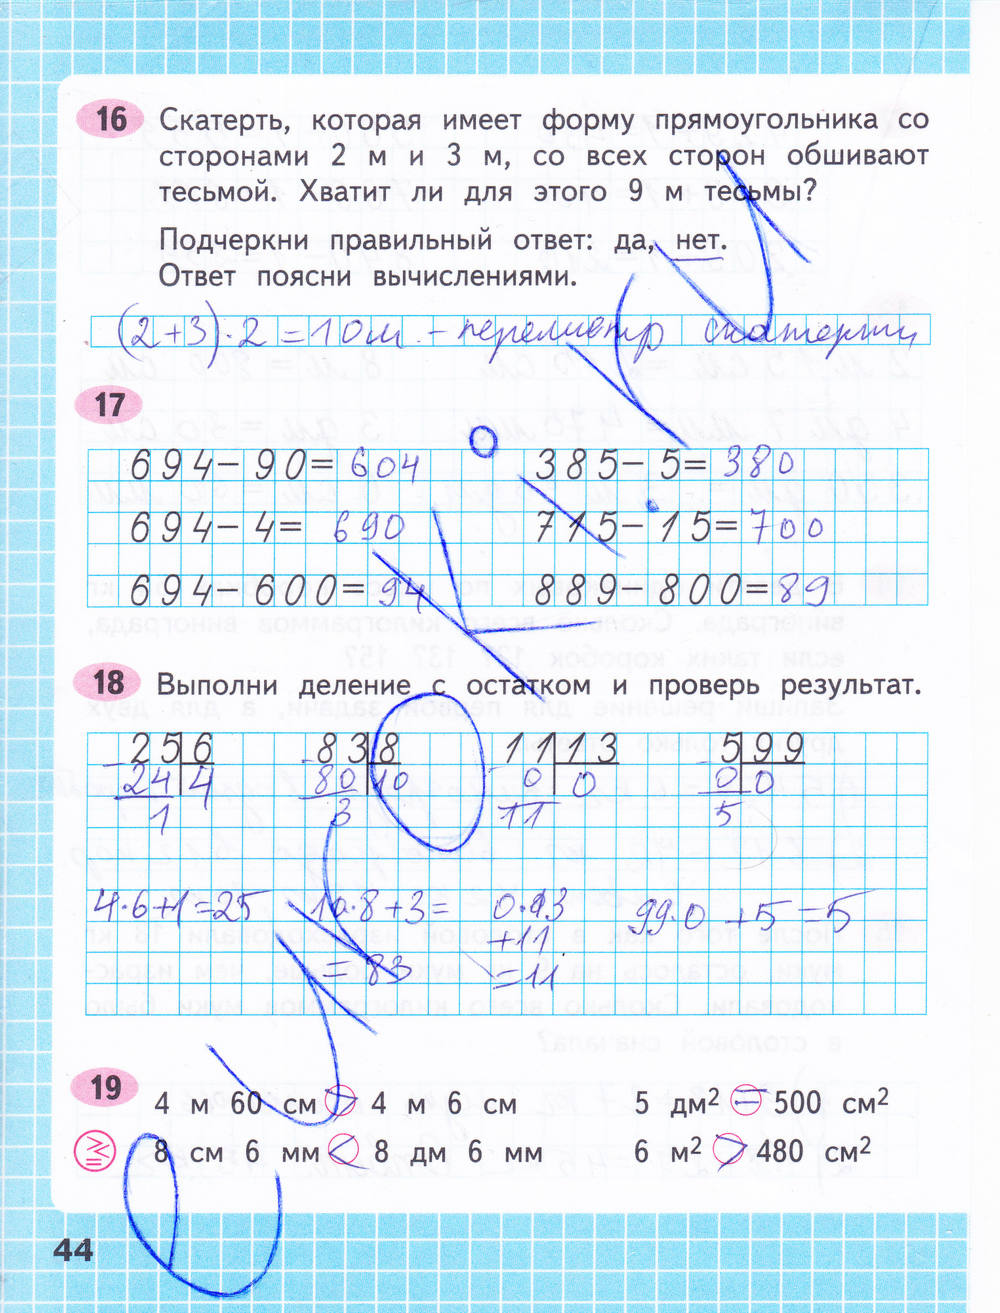 16 Скатерть, которая имеет форму прямоугольника со
сторонами 2 м и 3 м, со всех сторон обшивают
тесьмой. Хватит ли для этого 9 м тесьмы?
Подчеркни правильный ответ: да, нет.
Ответ поясни вычислениями.
(2+3)·2=10м – периметр скатерти
17
694-90=604 385-5=380
694-4= 690 715-15=700
694-600=94 889-800=89
18 Выполни деление с остатком и проверь результат.
25 6 83 8 11 13 5 99
24 4 80 10 0 0 0 0
1 3 11 5
4·6+1=25 10·8+3= 0·13 99·0+5=5
+11
=83 =11
19 4 м 60 см > 4 м 6 см 5 дм² = 500 см²
8 см 6 мм < 8 дм 6 мм 6 м² > 480 см²
44